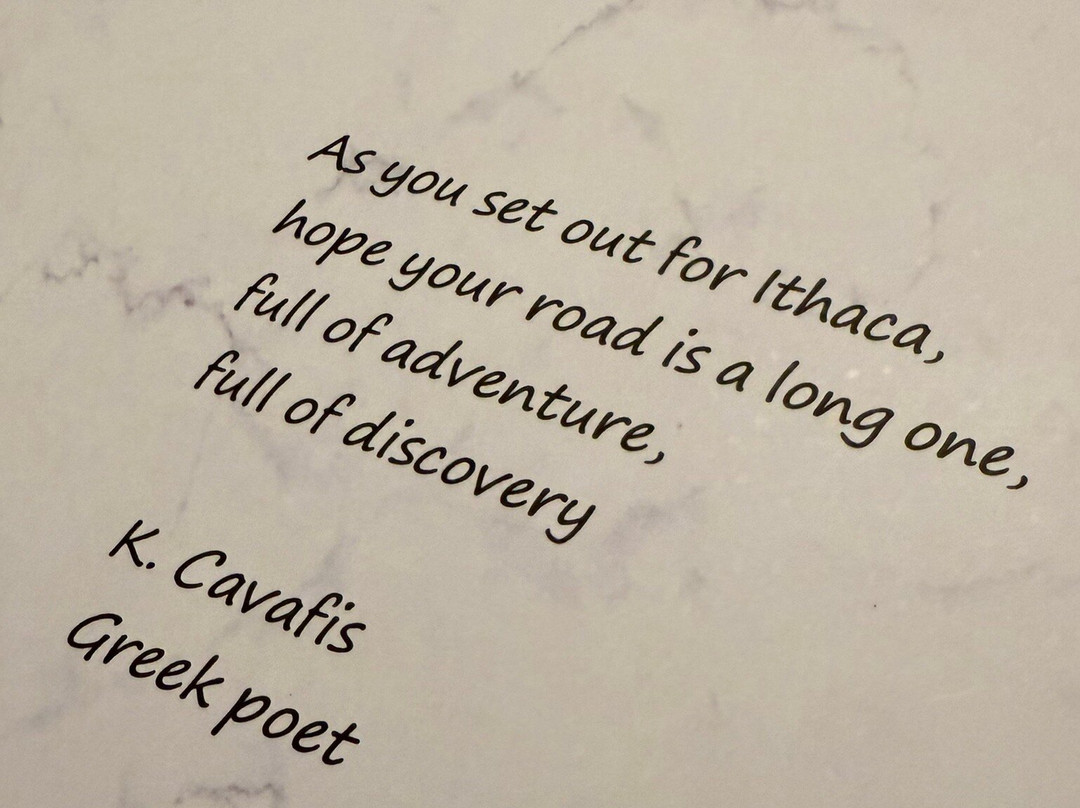 As you set out for Ithaca,
hope your road is a long one,
full of adventure,
full of discovery
K. Cavafis
Greek poet